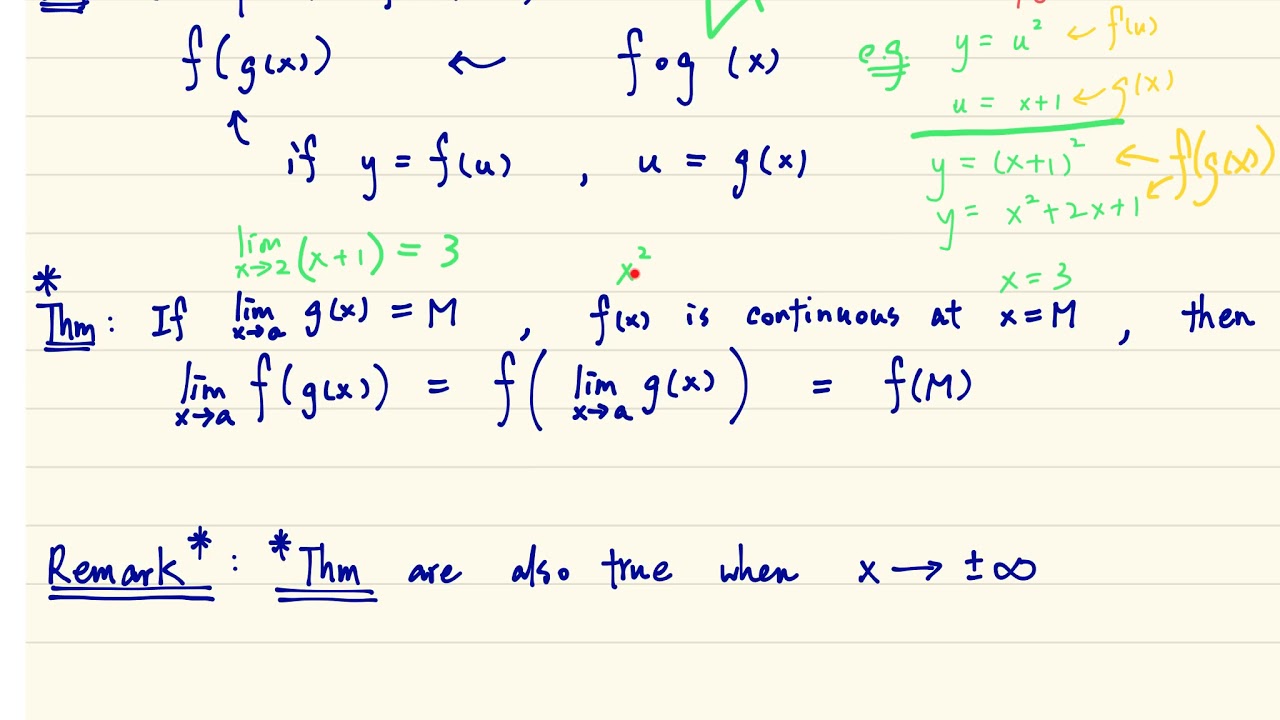 f(g(x)) ← f∘g (x)
e.g. y = u² ← f(u)
u = x+1 ← g(x)
if y = f(u) , u = g(x)
y = (x+1)² ← f(g(x))
y = x²+2x+1
lim x→2 (x+1) = 3
x²
x = 3
* Thm: If lim x→a g(x) = M , f(x) is continuous at x=M , then
lim x→a f(g(x)) = f( lim x→a g(x) ) = f(M)
Remark* : *Thm are also true when x → ±∞